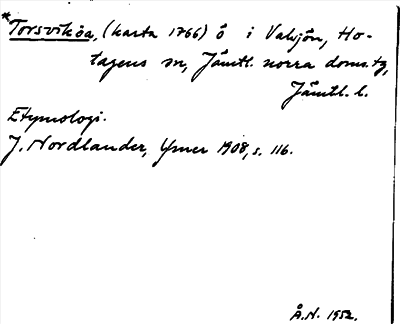 *Torsviköa, (karta 1766) ö i Valsjön, Ho-
tagens sn, Jämtl. norra doms.tg,
Jämtl. l.
Etymologi.
J. Nordlander, Ymer 1908, s. 116.
Å.N. 1952.